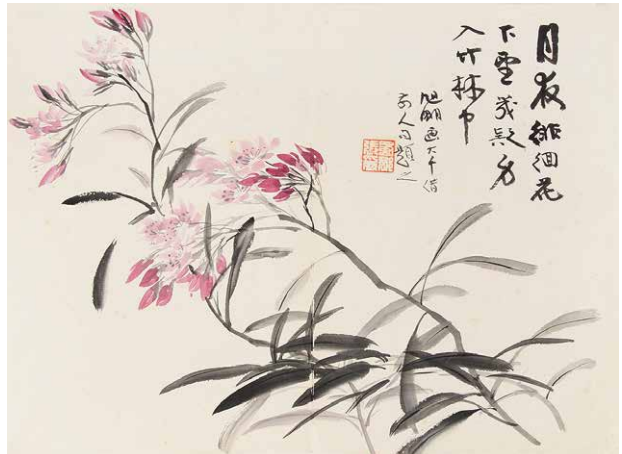 月夜徘徊花
下望幾疑身
入竹林中
旭明畫大千借
前人句題之